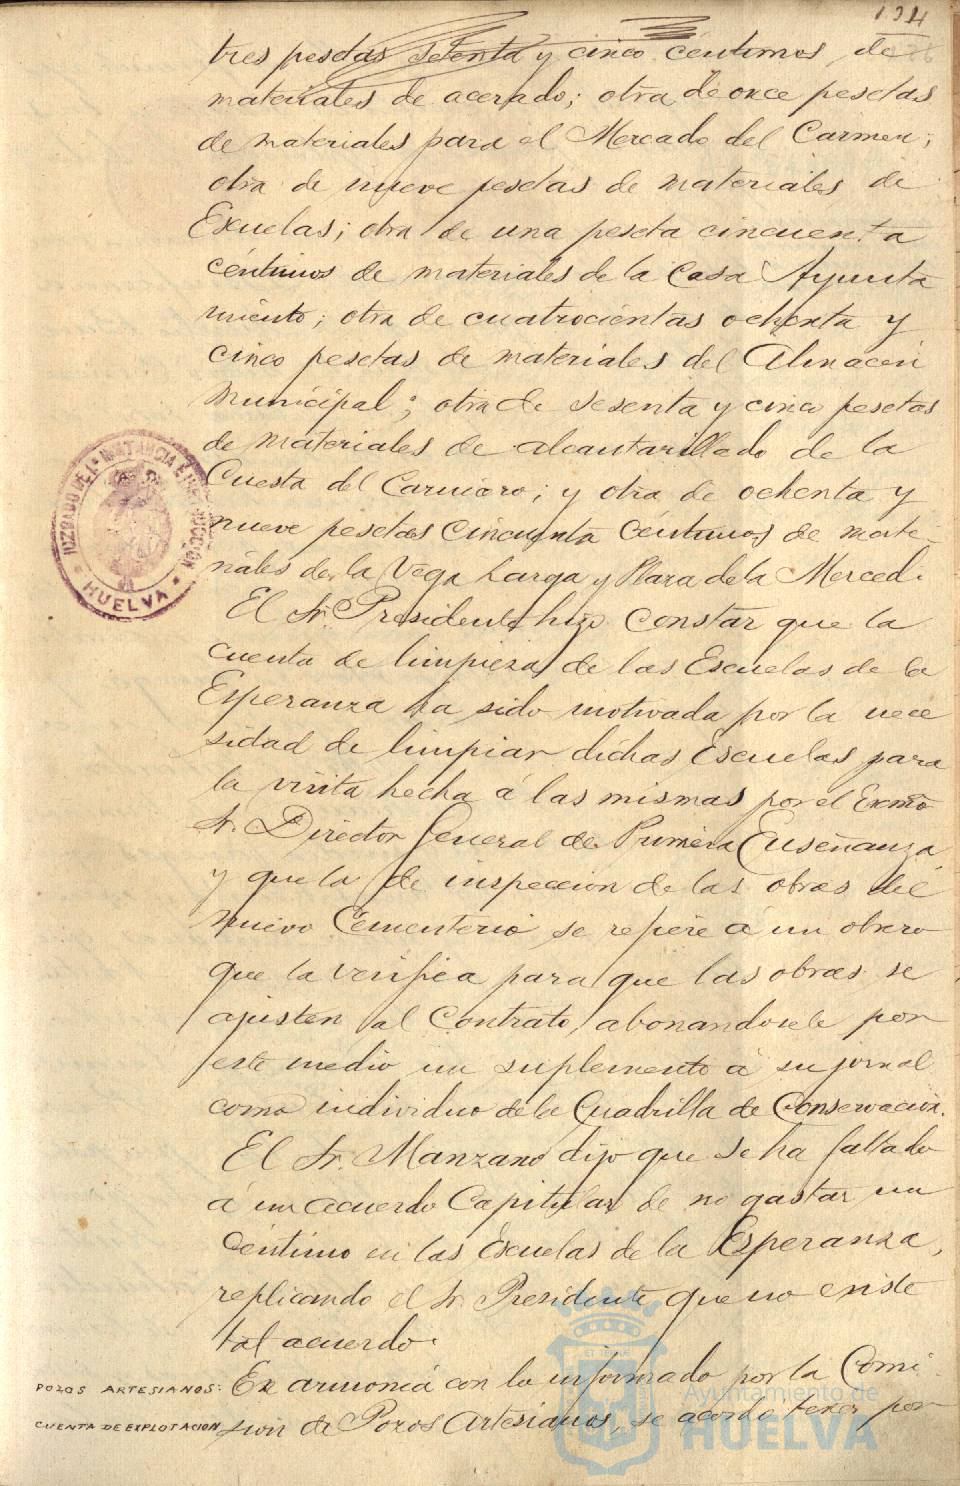 134
tres pesetas setenta y cinco céntimos, de
materiales de acerado; otra de once pesetas
de materiales para el Mercado del Carmen;
otra de nueve pesetas de materiales de
Escuelas; otra de una peseta cincuenta
céntimos de materiales de la Casa Ayunta
miento; otra de cuatrocientas ochenta y
cinco pesetas de materiales del Almacén
Municipal; otra de sesenta y cinco pesetas
de materiales de alcantarillado de la
Cuesta del Carnicero; y otra de ochenta y
nueve pesetas cincuenta céntimos de mate-
riales de la Vega Larga y Plaza de la Merced.
El Sr. Presidente hizo constar que la
cuenta de limpieza de las Escuelas de la
Esperanza ha sido motivada por la nece
sidad de limpiar dichas Escuelas para
la visita hecha á las mismas por el Excmo
Sr. Director General de Primera Enseñanza,
y que la de inspección de las obras del
nuevo Cementerio se refiere á un obrero
que la verifica para que las obras se
ajusten al Contrato, abonandosele por
este medio un suplemento á su jornal
como individuo de la Cuadrilla de Conservación.
El Sr. Manzano dijo que se ha faltado
á un acuerdo Capitular de no gastar un
céntimo en las Escuelas de la Esperanza,
replicando el Sr. Presidente que no existe
tal acuerdo.
POZOS ARTESIANOS: En armonía con lo informado por la Comi
CUENTA DE EXPLOTACION sión de Pozos Artesianos, se acordó tener por
JUZGADO DE 1ª INSTANCIA E INSTRUCCION
HUELVA
Ayuntamiento de
HUELVA